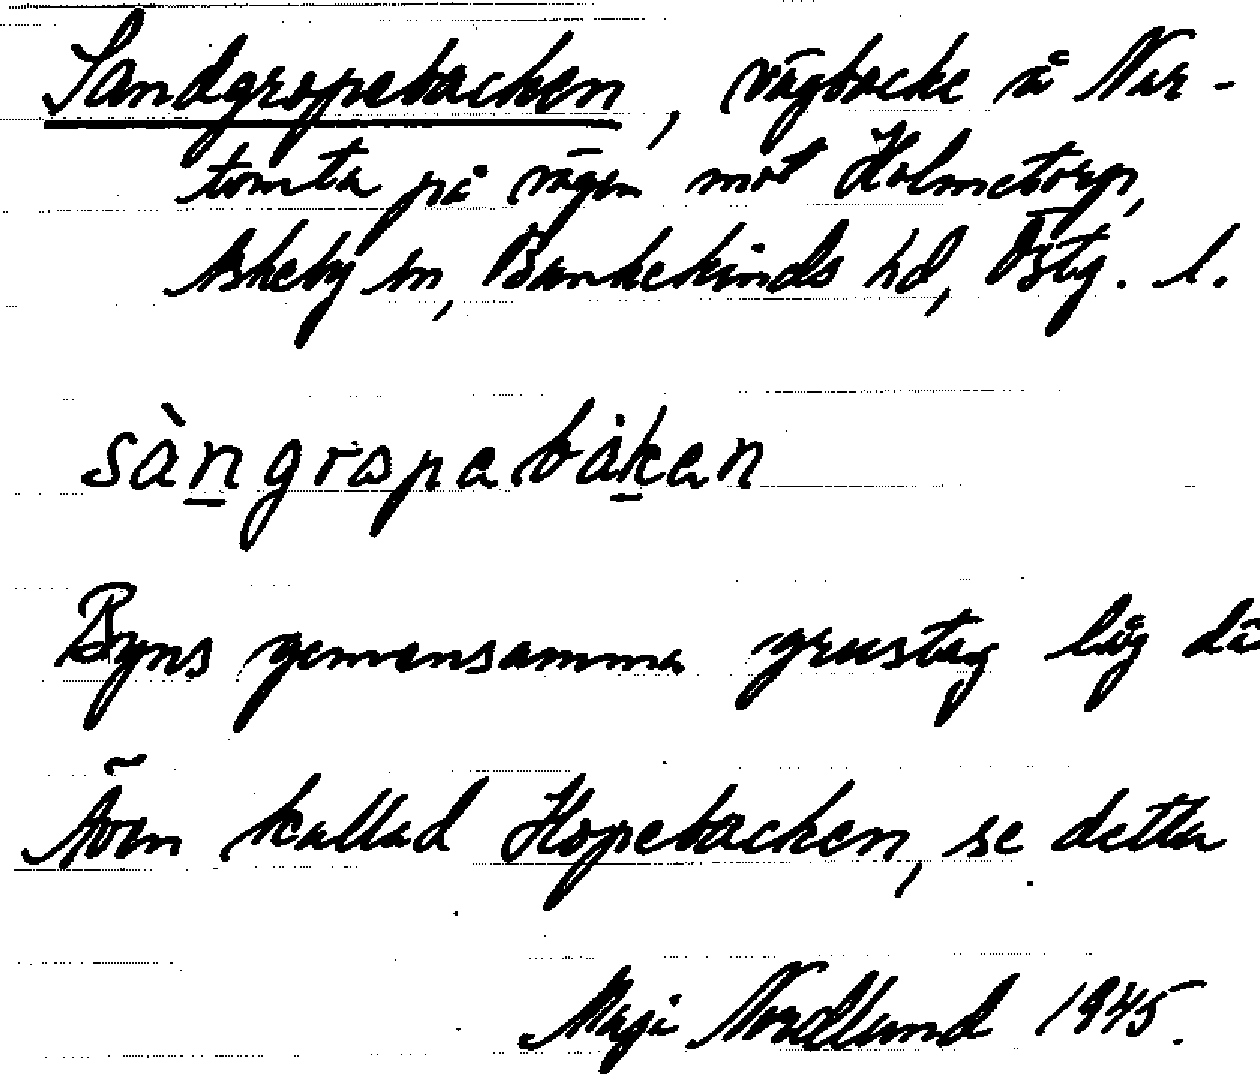 Sandgropebacken, vägbacke å Nar-
tomta på vägen mot Holmetorp,
Askeby sn, Bankekinds hd, Östg. l.
sàngropebåken
Byns gemensamma grustag låg dä
Även kallad Hopebacken, se detta
Maja Nordlund 1945.